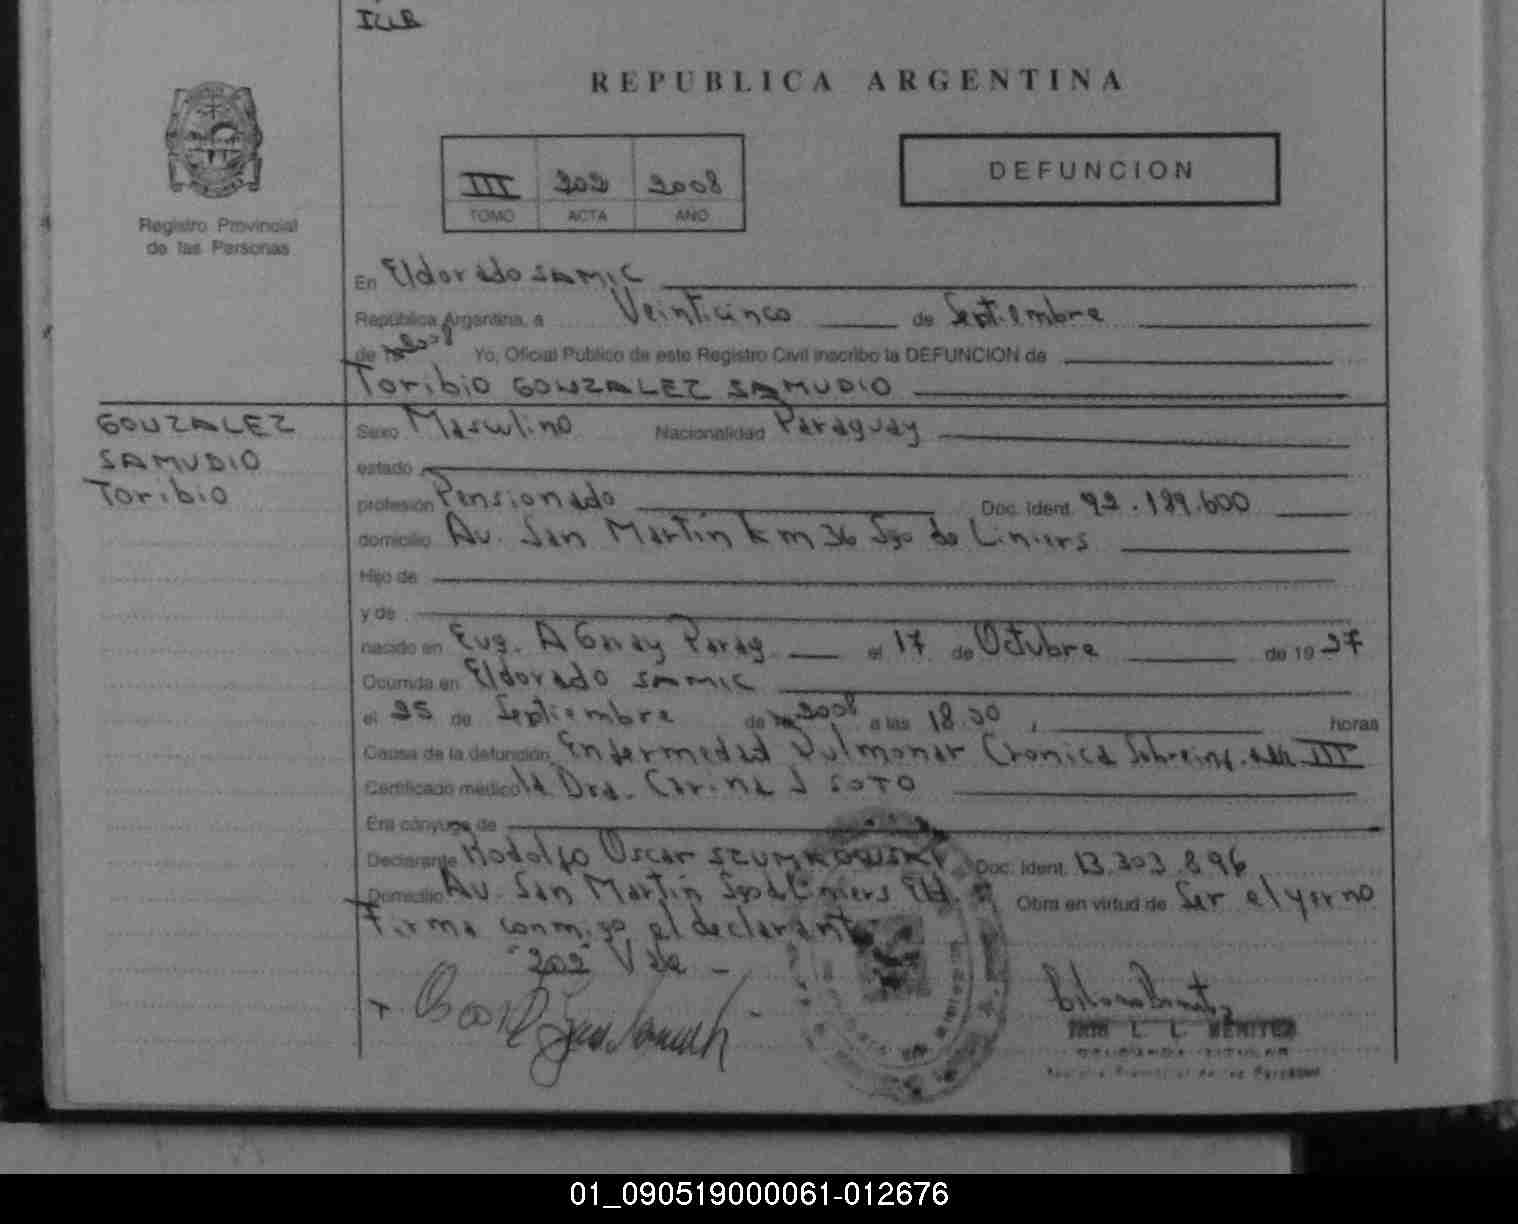 REPUBLICA ARGENTINA
DEFUNCION
III 202 2008
TOMO ACTA AÑO
Registro Provincial
de las Personas
En Eldorado SAMIC
República Argentina, a Veinticinco de Septiembre
de 2008 Yo, Oficial Público de este Registro Civil inscribo la DEFUNCION de
Toribio GONZALEZ SAMUDIO
GONZALEZ
SAMUDIO
Toribio
Sexo Masculino Nacionalidad Paraguay
estado
profesión Pensionado Doc. Ident. 92.189.600
domicilio Av. San Martín km 36 Sgo de Liniers
Hijo de
y de
nacido en Eug. A Garay Parag el 17 de Octubre de 19 37
Ocurrida en Eldorado SAMIC
el 25 de Septiembre de 2008 a las 18.30 horas
Causa de la defunción Enfermedad Pulmonar Cronica III
Certificado médico la Dra. Carina J SOTO
Era cónyuge de
Declarante Rodolfo Oscar SZUMKOWSKI Doc. Ident. 13.303.896
Domicilio Av. San Martín Sgo d Liniers Eld. Obra en virtud de Ser el yerno
Firma conmigo el declarante
"202" Vale -
L. L. BENITEZ
01_090519000061-012676